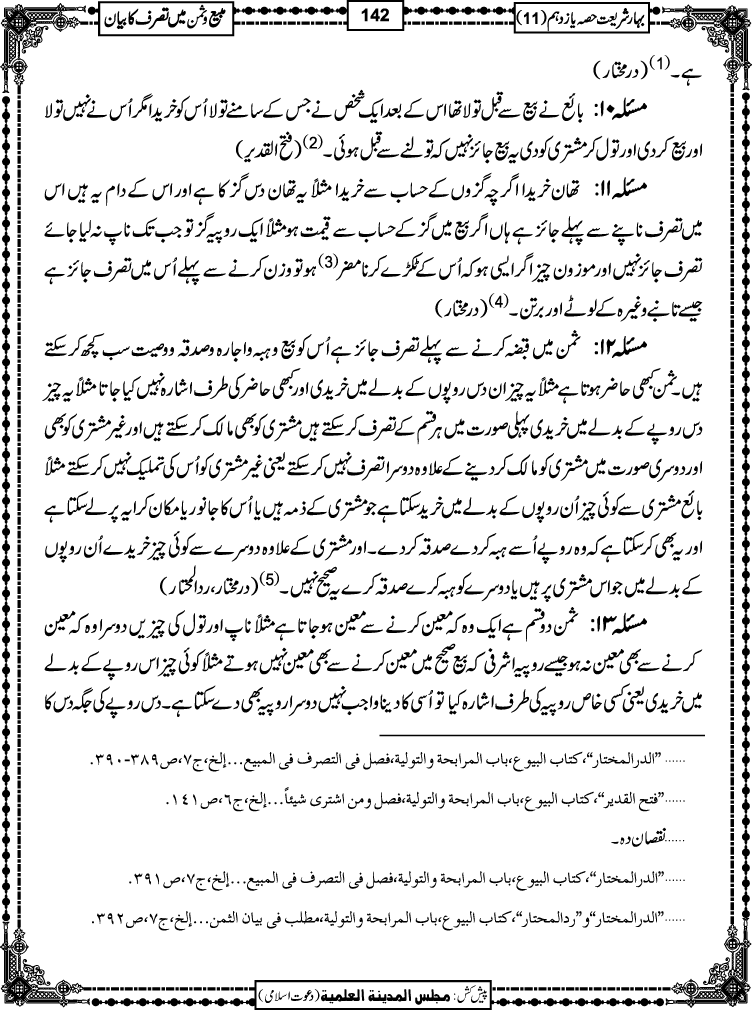 بہار شریعت حصہ یازدہم (11)
142
مبیع و ثمن میں تصرف کا بیان
ہے۔(1) (درمختار)
مسئلہ ۱۰: بائع نے بیع سے قبل تولا تھا اس کے بعد ایک شخص نے جس کے سامنے تولا اُس کو خریدا مگر اُس نے نہیں تولا
اور بیع کر دی اور تول کر مشتری کو دی یہ بیع جائز نہیں کہ تولنے سے قبل ہوئی۔(2) (فتح القدیر)
مسئلہ ۱۱: تھان خریدا اگرچہ گزوں کے حساب سے خریدا مثلاً یہ تھان دس گز کا ہے اور اس کے دام یہ ہیں اس
میں تصرف ناپنے سے پہلے جائز ہے ہاں اگر بیع میں گز کے حساب سے قیمت ہو مثلاً ایک روپیہ گز تو جب تک ناپ نہ لیا جائے
تصرف جائز نہیں اور موزون چیز اگر ایسی ہو کہ اُس کے ٹکڑے کرنا مضر(3) ہو تو وزن کرنے سے پہلے اُس میں تصرف جائز ہے
جیسے تانبے وغیرہ کے لوٹے اور برتن۔(4) (درمختار)
مسئلہ ۱۲: ثمن میں قبضہ کرنے سے پہلے تصرف جائز ہے اُس کو بیع و ہبہ و اجارہ و صدقہ و وصیت سب کچھ کر سکتے
ہیں۔ ثمن کبھی حاضر ہوتا ہے مثلاً یہ چیز ان دس روپوں کے بدلے میں خریدی اور کبھی حاضر کی طرف اشارہ نہیں کیا جاتا مثلاً یہ چیز
دس روپے کے بدلے میں خریدی پہلی صورت میں ہر قسم کے تصرف کر سکتے ہیں مشتری کو بھی مالک کر سکتے ہیں اور غیر مشتری کو بھی
اور دوسری صورت میں مشتری کو مالک کر دینے کے علاوہ دوسرا تصرف نہیں کر سکتے یعنی غیر مشتری کو اُس کی تملیک نہیں کر سکتے مثلاً
بائع مشتری سے کوئی چیز اُن روپوں کے بدلے میں خرید سکتا ہے جو مشتری کے ذمہ ہیں یا اُس کا جانور یا مکان کرایہ پر لے سکتا ہے
اور یہ بھی کر سکتا ہے کہ وہ روپے اُسے ہبہ کر دے صدقہ کر دے۔ اور مشتری کے علاوہ دوسرے سے کوئی چیز خریدے اُن روپوں
کے بدلے میں جو اس مشتری پر ہیں یا دوسرے کو ہبہ کرے صدقہ کرے یہ صحیح نہیں۔(5) (درمختار، ردالمحتار)
مسئلہ ۱۳: ثمن دو قسم ہے ایک وہ کہ معین کرنے سے معین ہو جاتا ہے مثلاً ناپ اور تول کی چیزیں دوسرا وہ کہ معین
کرنے سے بھی معین نہ ہو جیسے روپیہ اشرفی کہ بیع صحیح میں معین کرنے سے بھی معین نہیں ہوتے مثلاً کوئی چیز اس روپے کے بدلے
میں خریدی یعنی کسی خاص روپیہ کی طرف اشارہ کیا تو اُسی کا دینا واجب نہیں دوسرا روپیہ بھی دے سکتا ہے۔ دس روپے کی جگہ دس کا
...... ”الدرالمختار“، کتاب البیوع، باب المرابحة والتولیة، فصل فی التصرف فی المبیع...إلخ، ج۷، ص۳۸۹-۳۹۰.
...... ”فتح القدیر“، کتاب البیوع، باب المرابحة والتولیة، فصل ومن اشتری شیئاً...إلخ، ج۶، ص۱۴۱.
...... نقصان دہ۔
...... ”الدرالمختار“، کتاب البیوع، باب المرابحة والتولیة، فصل فی التصرف فی المبیع...إلخ، ج۷، ص۳۹۱.
...... ”الدرالمختار“ و ”ردالمحتار“، کتاب البیوع، باب المرابحة والتولیة، مطلب فی بیان الثمن...إلخ، ج۷، ص۳۹۲.
پیش کش: مجلس المدینة العلمیة (دعوت اسلامی)